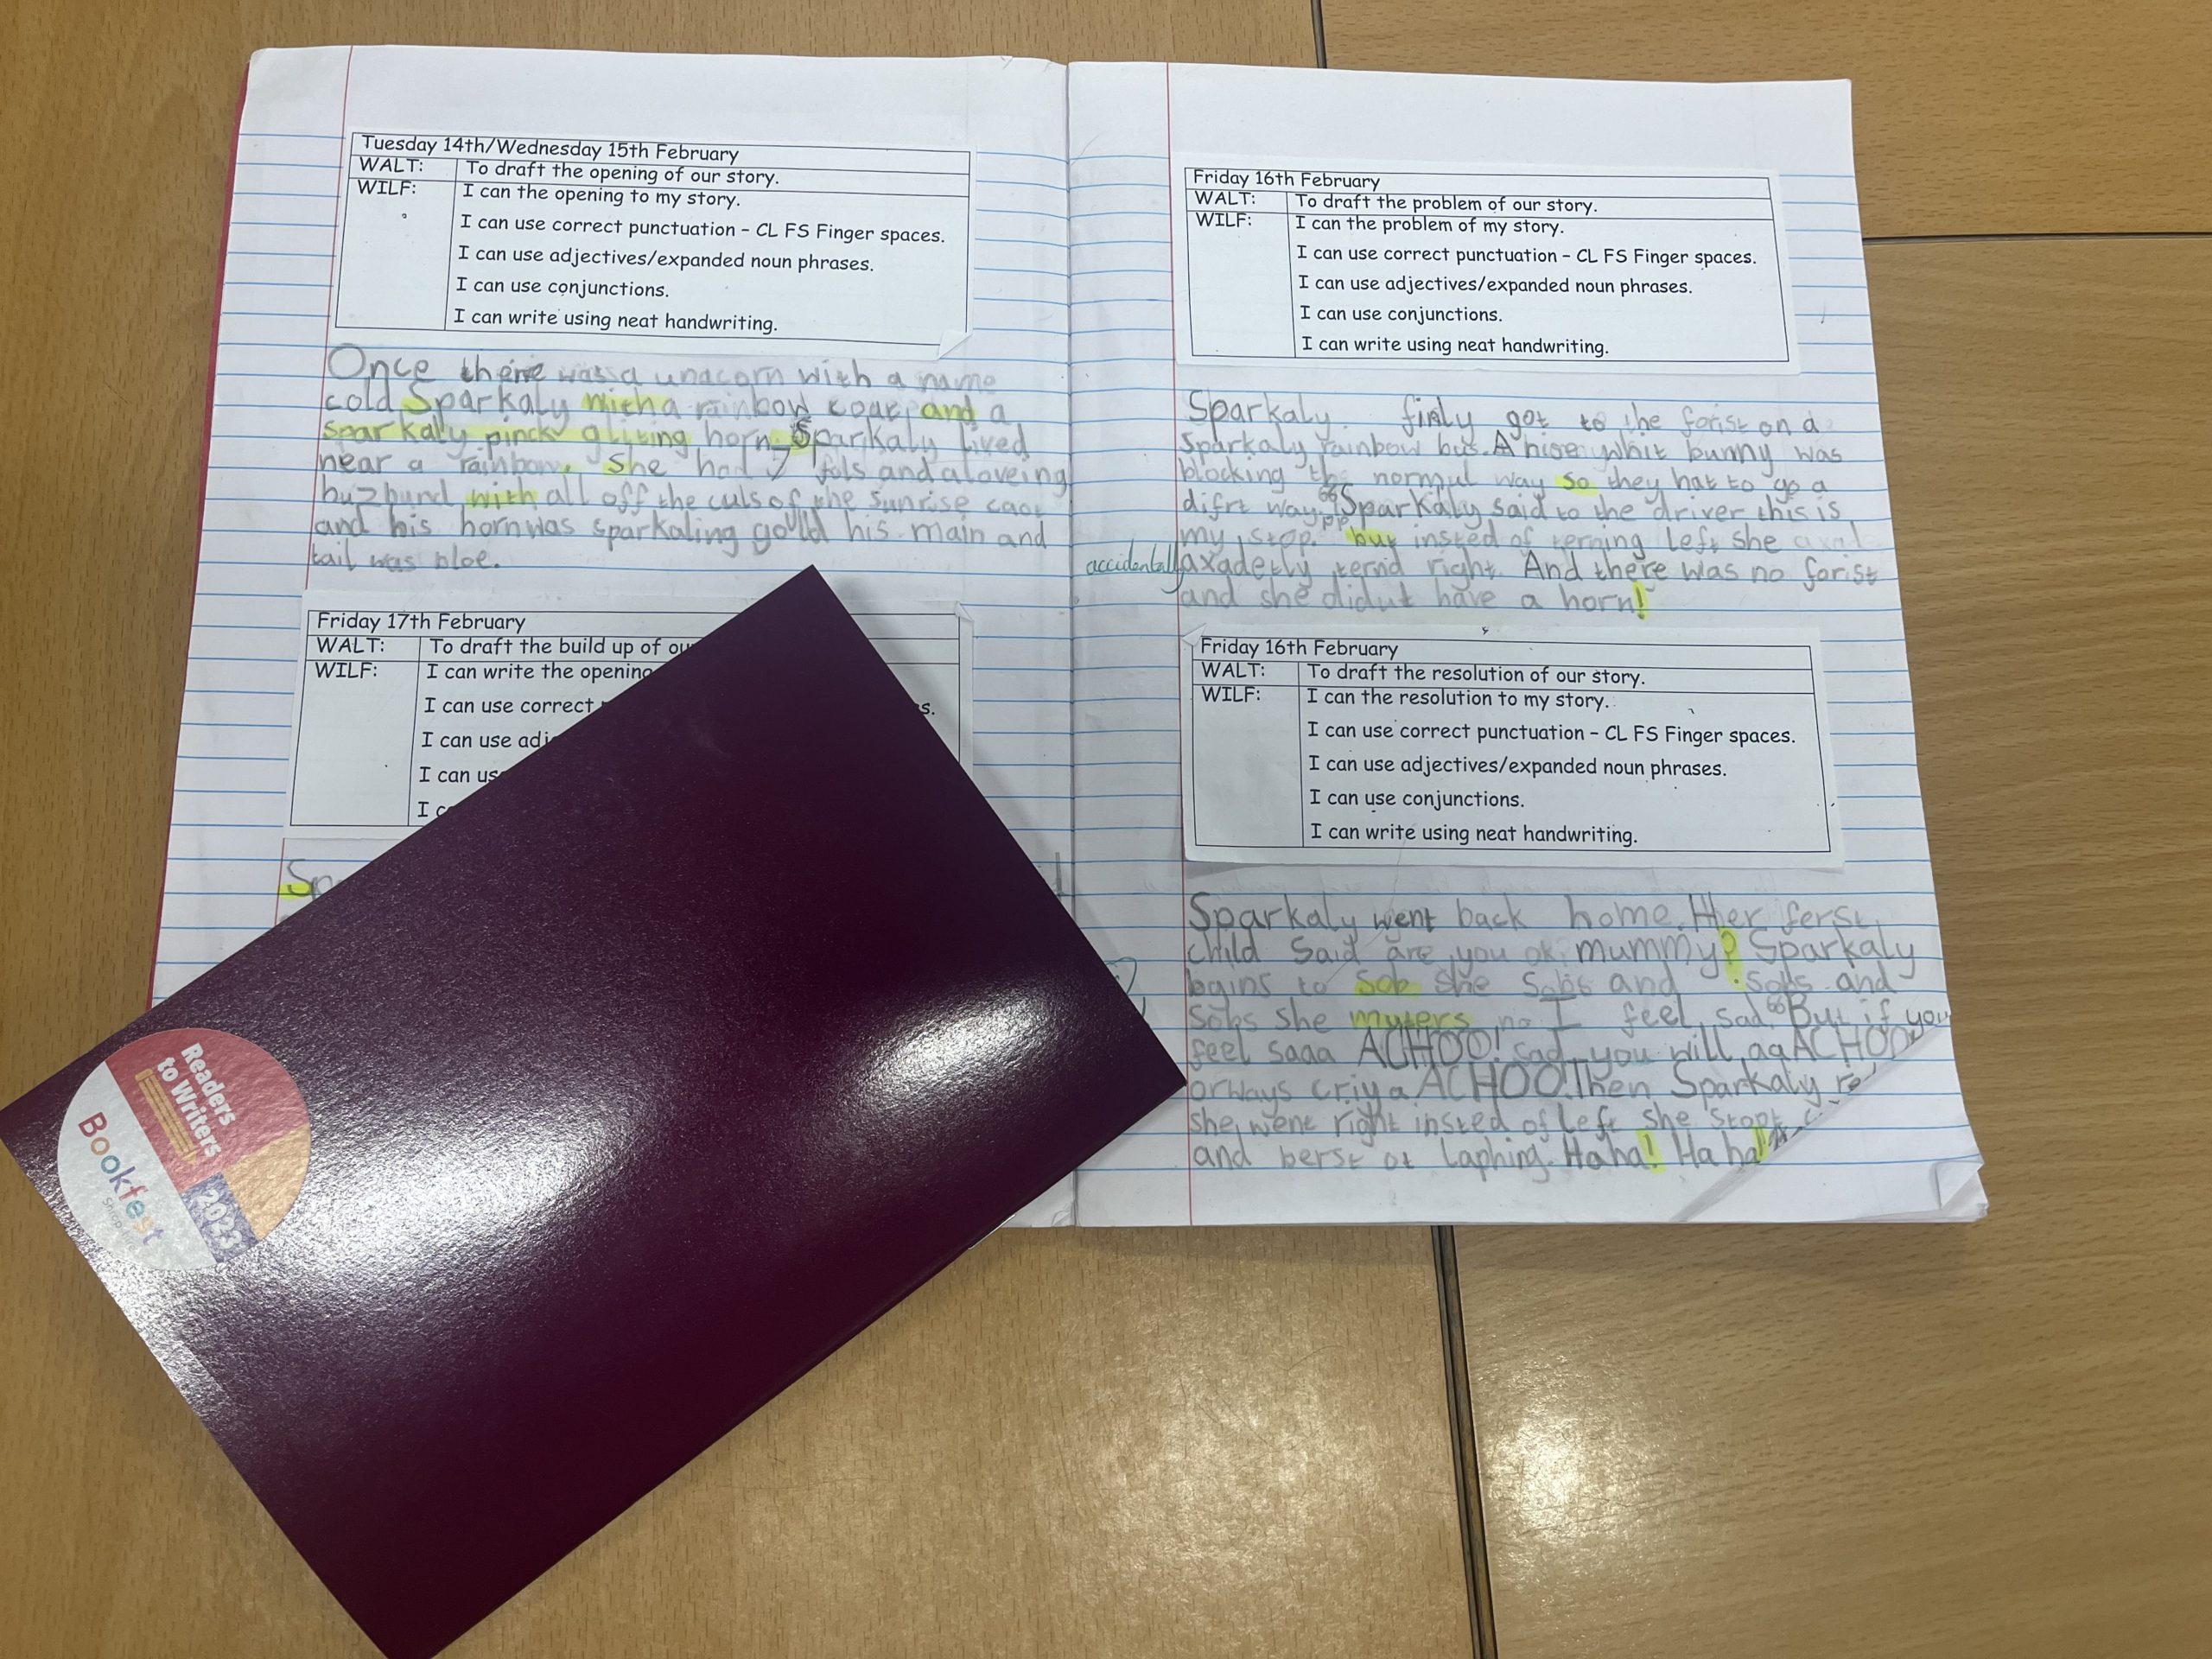 Tuesday 14th/Wednesday 15th February
WALT: To draft the opening of our story.
WILF: I can the opening to my story.
I can use correct punctuation – CL FS Finger spaces.
I can use adjectives/expanded noun phrases.
I can use conjunctions.
I can write using neat handwriting.
Once there was a unacorn with a name
cold Sparkaly with a rainbow coat and a
sparkally pinck gliting horn. Sparkaly lived
near a rainbow. She had 7 fols and a loveing
huzbund with all off the culs of the sunrise caot
and his horn was sparkaling gould his main and
tail was bloe.
Friday 17th February
WALT: To draft the build up of
WILF: I can write the opening
I can use correct
I can use
I can
I
Friday 16th February
WALT: To draft the problem of our story.
WILF: I can the problem of my story.
I can use correct punctuation – CL FS Finger spaces.
I can use adjectives/expanded noun phrases.
I can use conjunctions.
I can write using neat handwriting.
Sparkaly finly got to the forist on a
Sparkaly rainbow bus. A whit bunny was
blocking the normul way so they hat to go a
difrt way. Sparkaly said to the driver this is
my stop. but insted of terning left she
accidentally axadetly ternd right. And there was no forist
and she didnt have a horn!
Friday 16th February
WALT: To draft the resolution of our story.
WILF: I can the resolution to my story.
I can use correct punctuation – CL FS Finger spaces.
I can use adjectives/expanded noun phrases.
I can use conjunctions.
I can write using neat handwriting.
Sparkaly went back home. Her ferst
child said are you ok mummy? Sparkaly
bgins to sob she sobs and sobs and
sobs she muters no I feel sad. "But if you
feel saaa ACHOO! sad you will aaACHOO
orways criy a ACHOO! Then Sparkaly
she went right insted of left she stopt
and berst ot laphing. Ha ha! Ha ha!
Readers
to Writers
Bookfest
2023